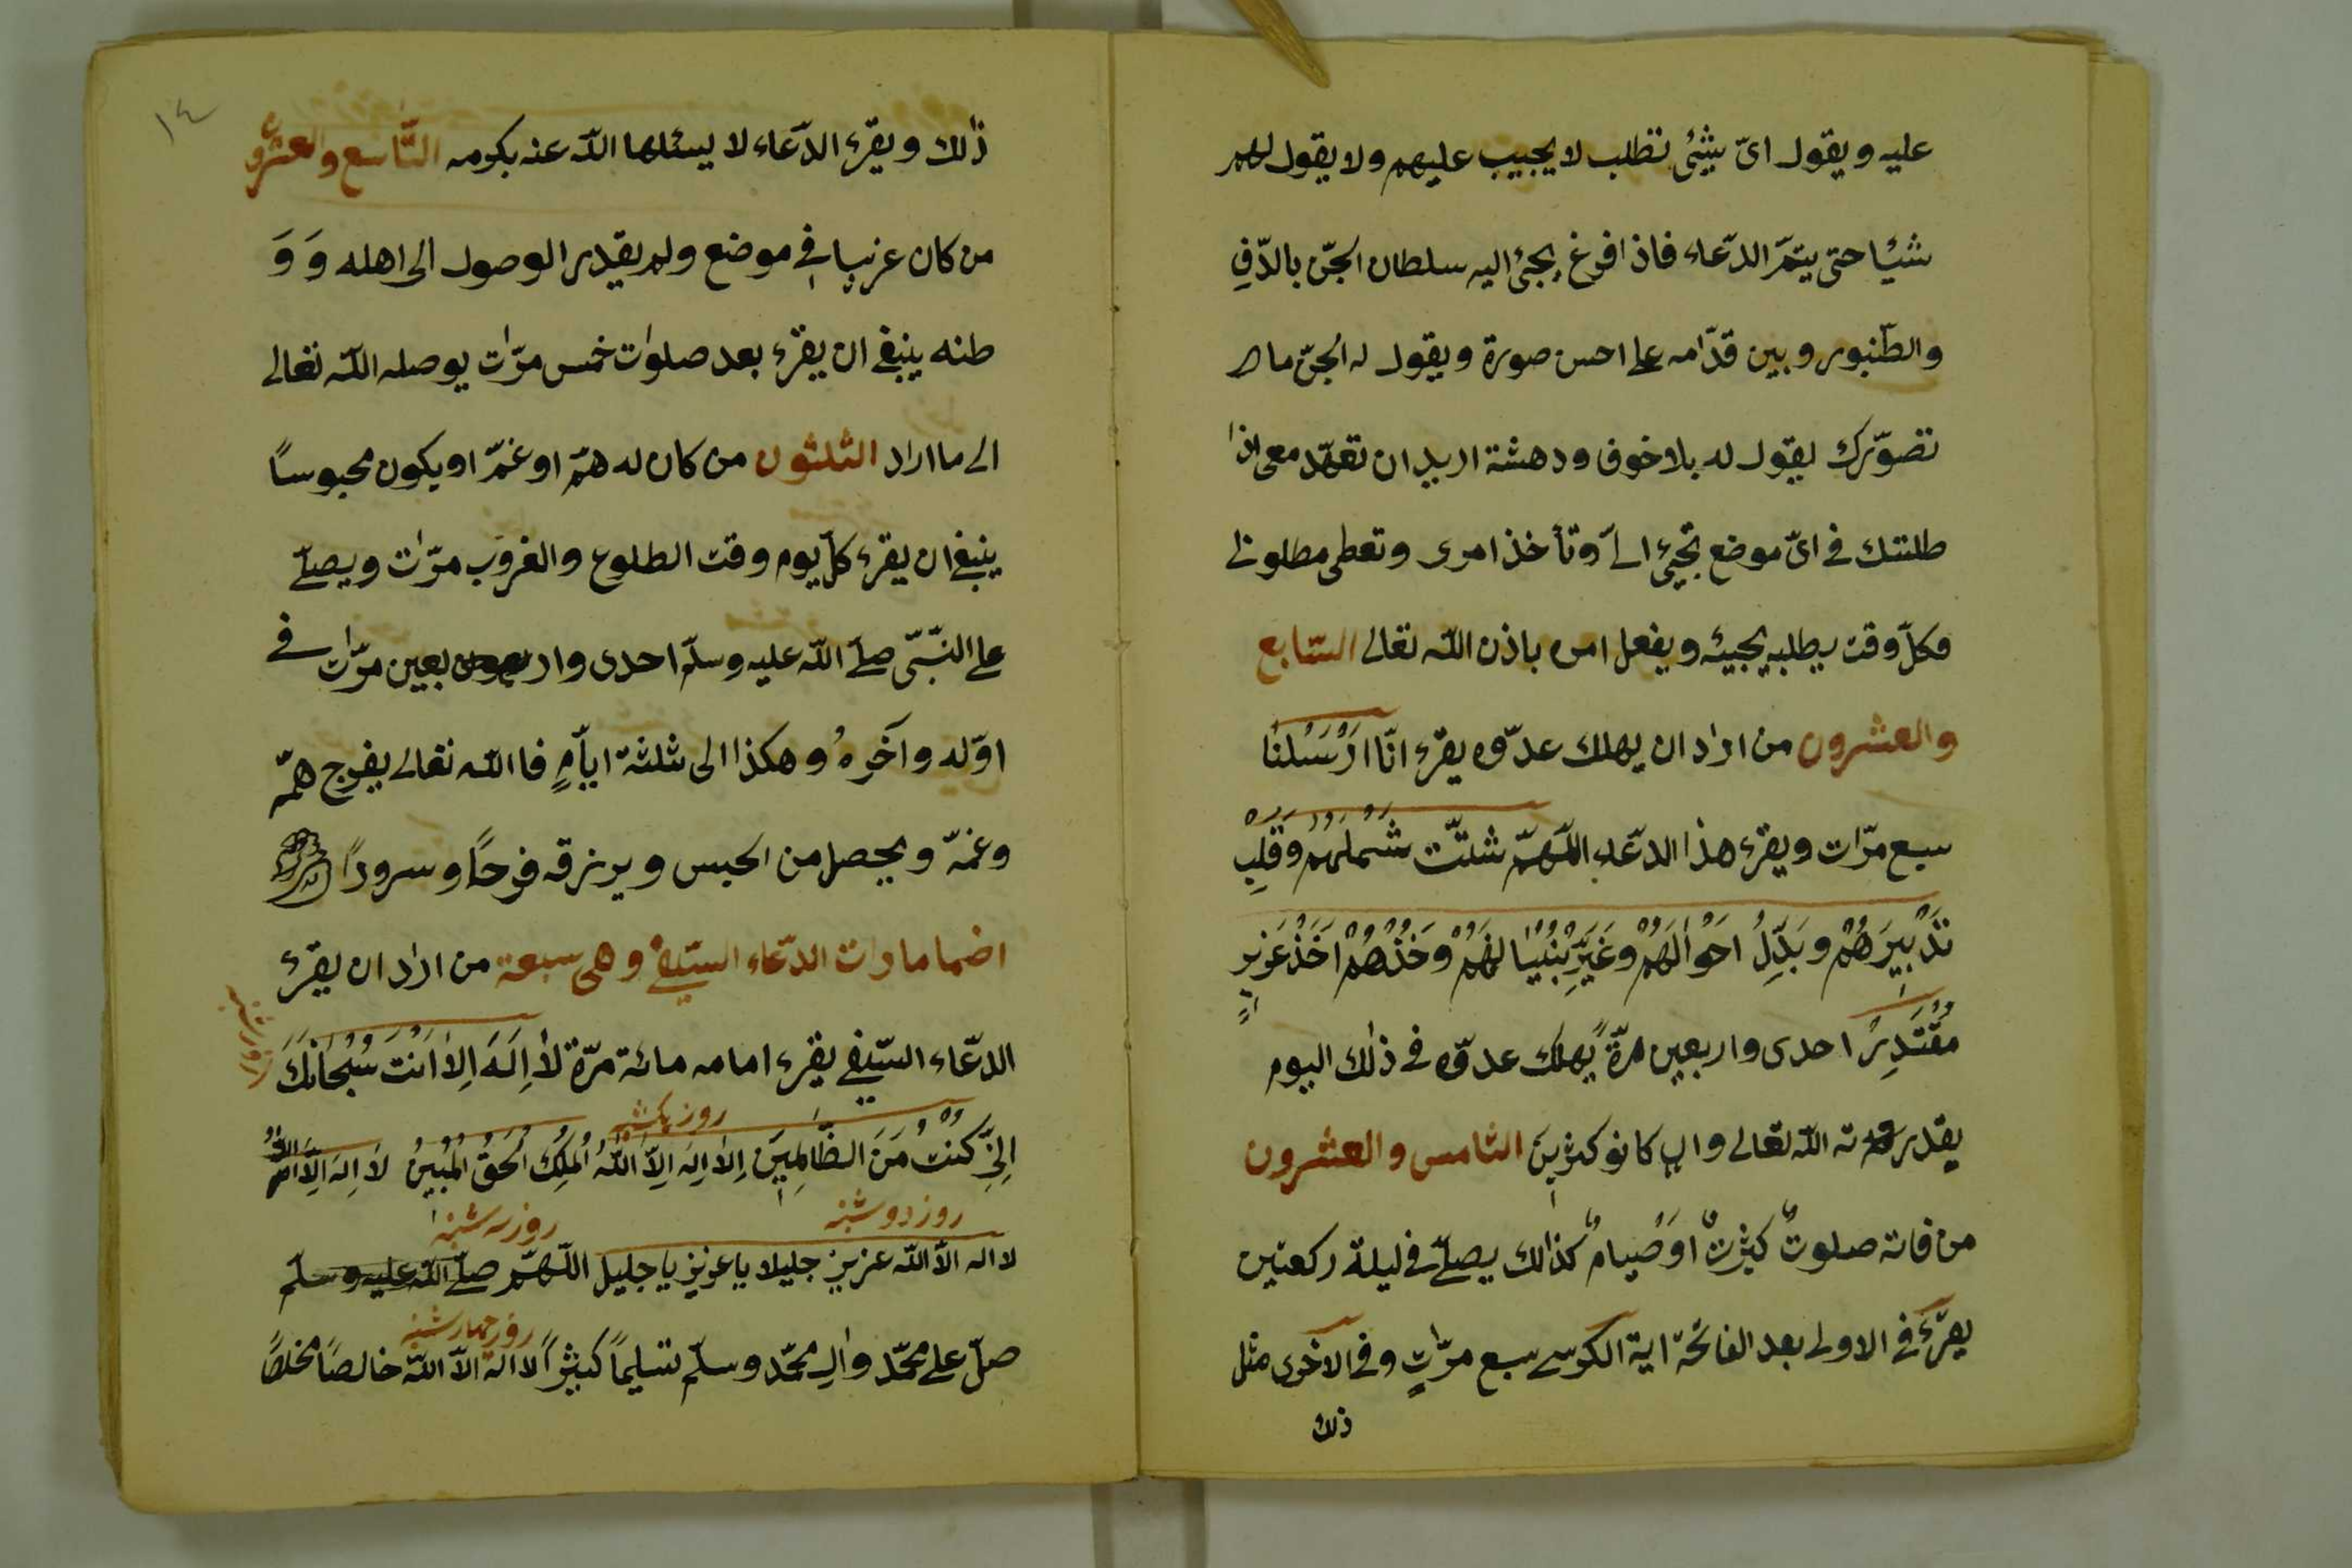 عليه ويقول اىّ شئى تطلب لا يجيب عليهم ولا يقول لهم
شيئا حتى يتمّ الدّعاء فاذا فرغ يجئ اليه سلطان الجنّ بالدّفِ
والطّنبور وبين قدّامه على احسن صورة ويقول له الجنّ ما
تصوّرك يقول له بلا خوف ودهشة اريد ان تعهّد معى اذا
طلبتك فى اىّ موضع تجيئ الىّ وتأخذ امرى وتعطى مطلوبى
وكلّ وقت يطلبه يجيئه ويفعل امره باذن الله تعالى السّابع
والعشرون من اراد ان يهلك عدوّه يقرء انّا ارْسَلْنا
سبع مرّات ويقرء هذا الدّعاء اللّهمّ شتّت شَمْلَهُمْ وَقَلِّبْ
تَدْبِيرَهُمْ وبَدِّلْ احْوالَهُمْ وغَيِّرْ بُنْيَانَهُمْ وخُذْهُمْ اَخْذَ عَزِيزٍ
مُقْتَدِرٍ احدى واربعين مرّةً يهلك عدوّه فى ذٰلك اليوم
بقدرته الله تعالى وان كانو كثيرينَ الثامن والعشرون
من فاته صلوتٌ كثيرتٌ اوْ صيامٌ كذالك يصلّى فى ليلة ركعتين
يقرَء فى الاولى بعد الفاتحة اية الكرسى سبع مرّاتٍ وفى الاخرى مثل
ذلك
١٤
ذٰلك ويقرء الدّعاء لا يسئلها الله عنه بكرمه التّاسع والعشرون
من كان غريبا فى موضع ولم يقدر الوصول الى اهله وَ وَ
طنه ينبغى ان يقرء بعد صلوات خمس مرّات يوصله الله تعالى
الى ما اراد الثلثون من كان له همّ او غمّ او يكون محبوساً
ينبغى ان يقرء كلّ يوم وقت الطلوع والغروب مرّات ويصلّى
على النّبىّ صلّى الله عليه وسلّم احدى وار بعين مرّات فى
اوّله وآخرهُ وهكذا الى ثلثة ايّامٍ فا الله تعالى يفرج همّه
وغمّه ويحصل من الحبس ويرزقه فرحًا وسرورًا
اضمامات الدّعاء السّيفى وهى سبعة من اراد ان يقرء
الدّعاء السّيفى يقرء امامه مائة مرّة لاٰ اِلَهَ اِلاّ اَنْتَ سُبْحَانَكَ
روز يكشنبه
اِنِّى كُنْتُ مِنَ الظَّالِمِينَ لاٰ اِلهَ اِلاّ اللّٰهُ اْلمَلِكُ اْلحَقُّ اْلمُبِينُ لاَ اِلهَ اِلاّ اللهُ
روز دوشنبه روز سه شنبه
لا اله الاّ الله عزيز جليلا يا عزيز يا جليل اللّهمّ صلّى الله عليه وسلّم
روز چهارشنبه
صلّ على محمّد وال محمّد وسلّم تسليماً كثيراً لا اله الاّ الله خالصًا مخلصًا